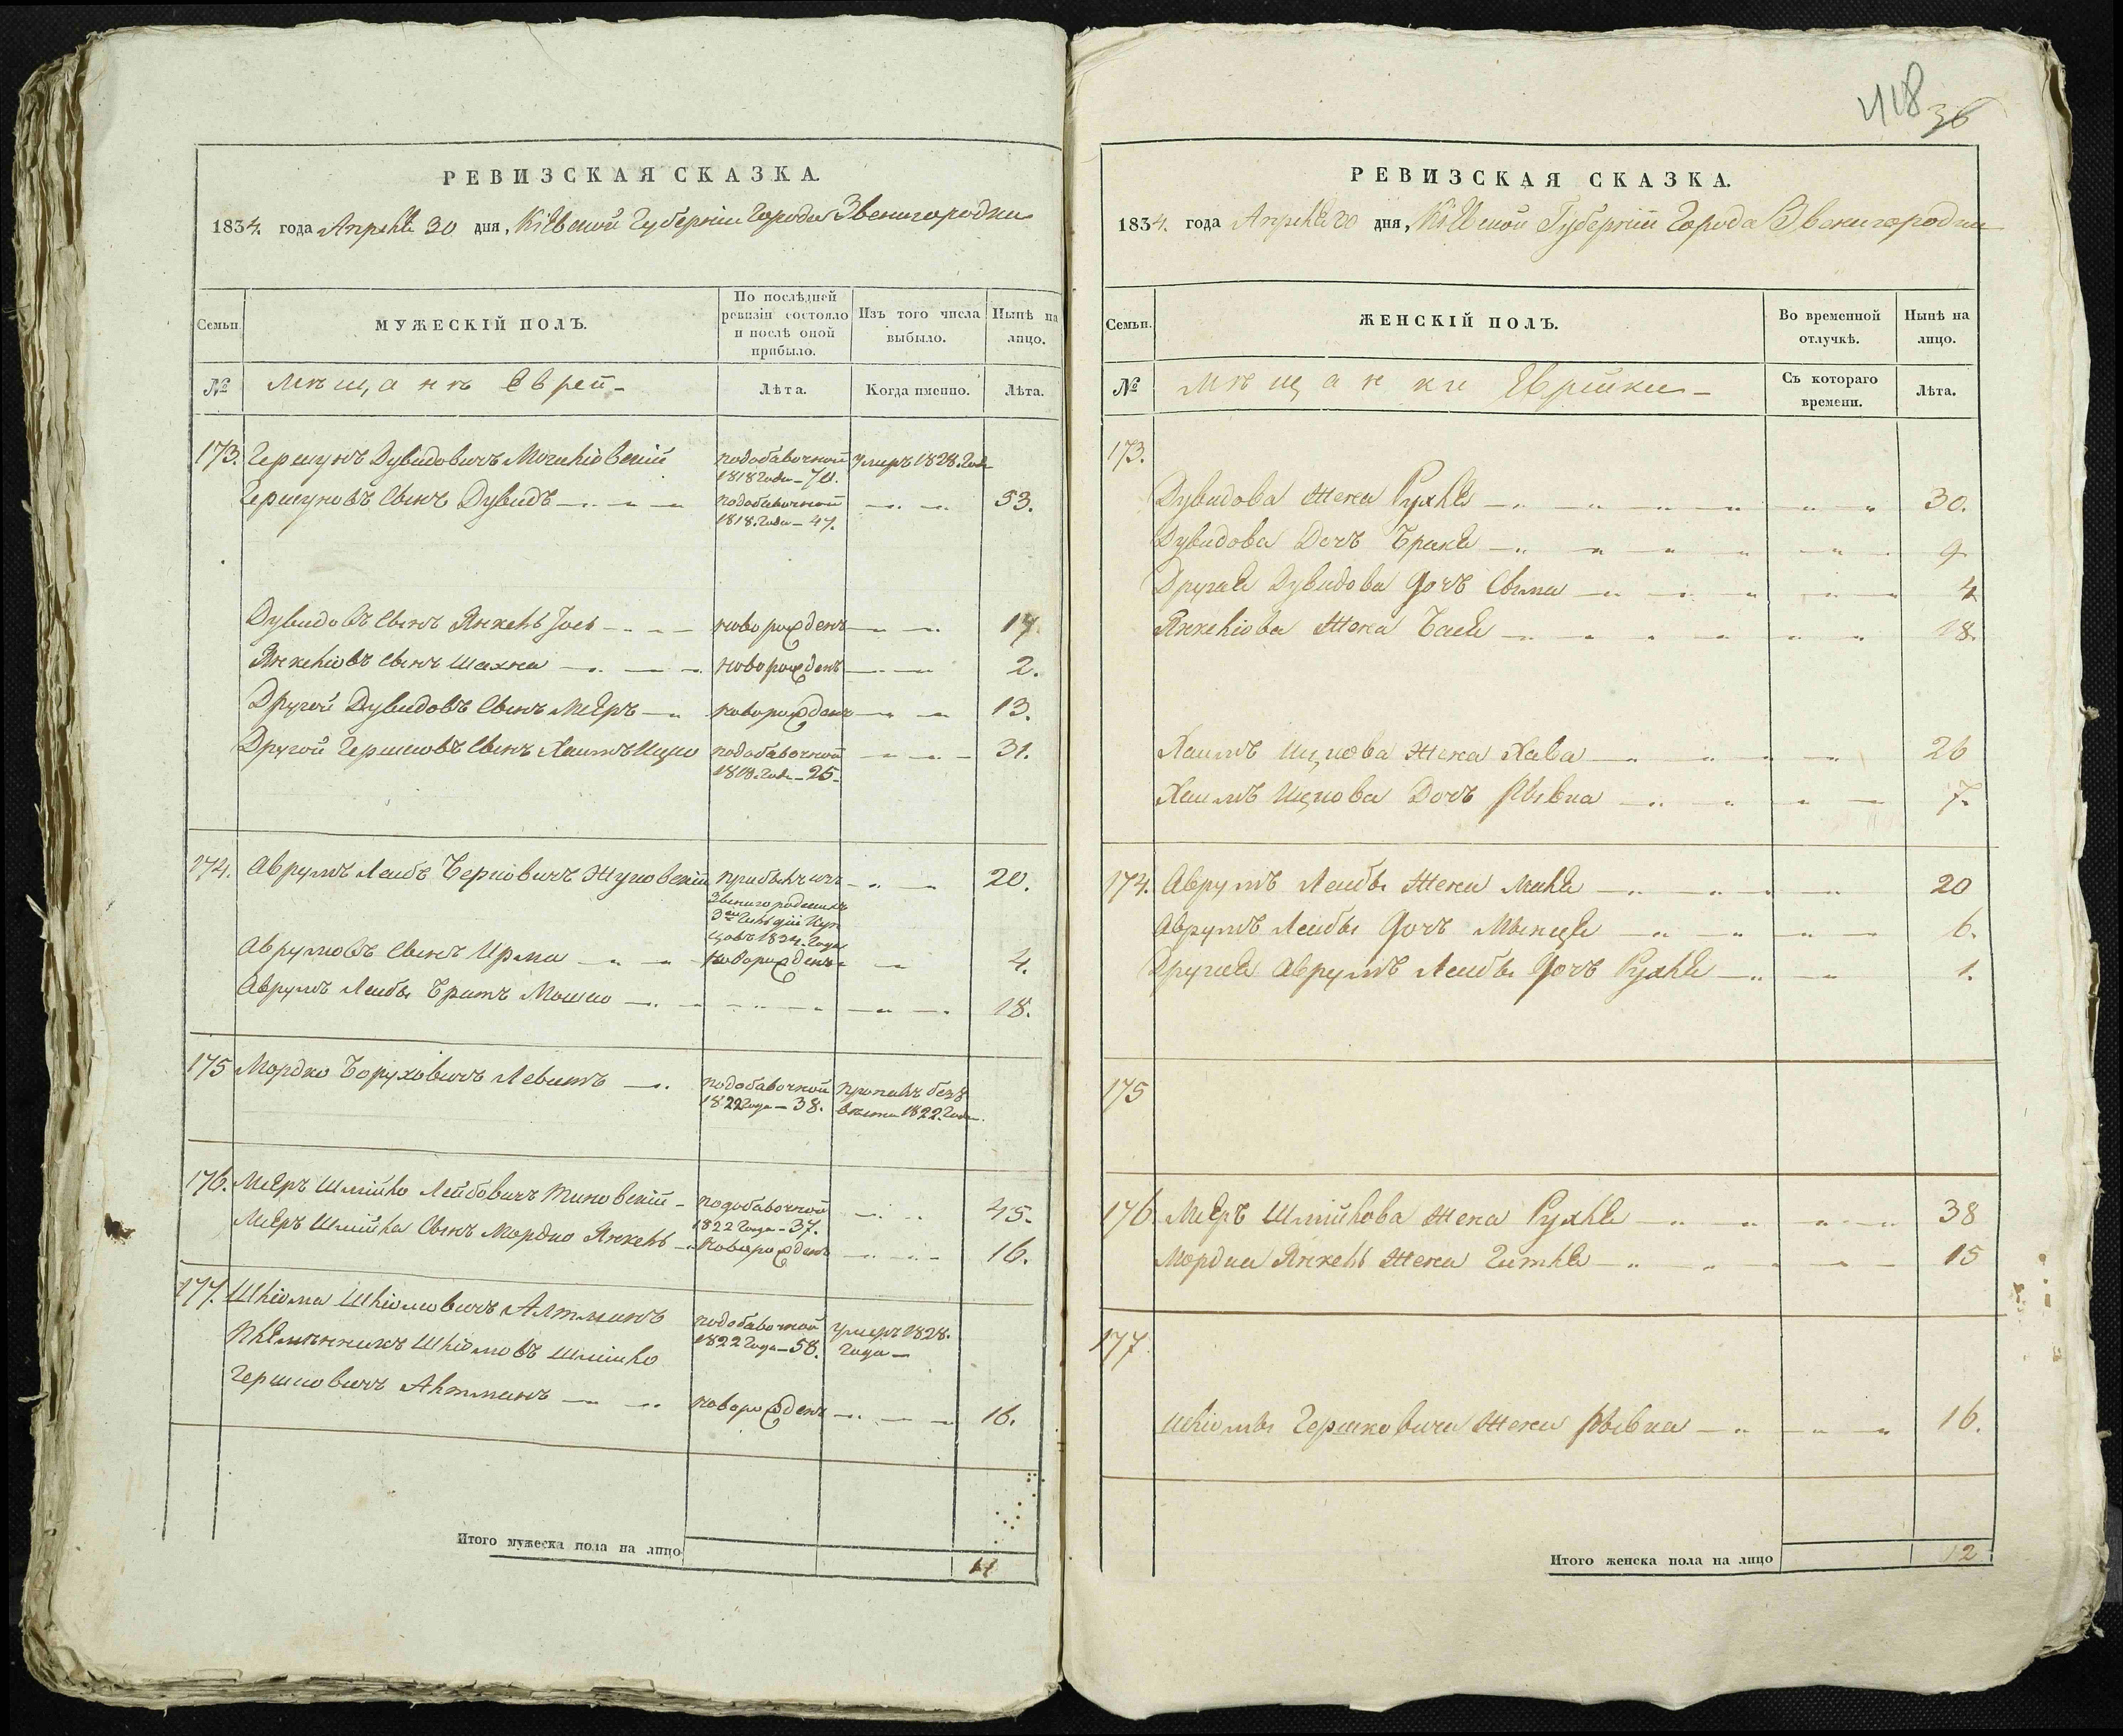 РЕВИЗСКАЯ СКАЗКА.
1834. года Апреля 30 дня, Кіевской Губерніи Города Звенигородки
Семьи.
МУЖЕСКІЙ ПОЛЪ.
По послѣдней ревизіи состояло и послѣ оной прибыло.
Изъ того числа выбыло.
Нынѣ на лицо.
№
Мѣщанъ Еврей
Лѣта.
Когда именно.
Лѣта.
173. Гершунъ Дувидовичъ подобавочной 1818 Года - 70. умеръ 1828. Года
Гершуновъ Сынъ Дувидъ подобавочной 1818. Года - 47. 53.
Дувидовъ Сынъ Янкель Іось новорожденъ 17.
Янкеліовъ Сынъ Шахна новорожденъ 2.
Другой Дувидовъ Сынъ Меяръ новорожденъ 13.
Другой Гершковъ Сынъ Хаимъ Ицко подобавочной 1818. Года - 25. 31.
174. Аврумъ Лейбъ Берковичъ Жуковскій прибылъ изъ Звенигородскихъ 3ей Гильдіи Купцовъ 1834. Года 20.
Аврумовъ Сынъ Ирма новорожденъ 4.
Аврумъ Лейбы Братъ Мошко 18.
175 Мордко Боруховичъ Левитъ подобавочной 1822 Года - 38. пропалъ безъ 1822. Года
176. Меяръ Шмійло Лейбовичъ подобавочной 1822 Года - 37. 45.
Меяръ Шмійла Сынъ Мордко Янкель новорожденъ 16.
177. Шліома Шліомовичъ Алтманъ подобавочной 1822 Года - 58. умеръ 1828. Года
Племянникъ Шліомовъ Шмійло
Гершковичъ Алтманъ новорожденъ 16.
Итого мужеска пола на лицо 11
418
36
РЕВИЗСКАЯ СКАЗКА.
1834. года Апреля 30 дня, Кіевской Губерніи Города Звенигородки
Семьи.
ЖЕНСКІЙ ПОЛЪ.
Во временной отлучкѣ.
Нынѣ на лицо.
№
Мѣщанки Еврейки
Съ котораго времени.
Лѣта.
173.
Дувидова Жена Рухля 30.
Дувидова Дочъ Брана 9.
Другая Дувидова Дочъ Сыма 4
Янкеліова Жена Бася 18.
Хаимъ Ицкова Жена Хава 26
Хаимъ Ицкова Дочъ Рывка 7.
174. Аврумъ Лейбы Жена Маля 20
Аврумъ Лейбы Дочъ 6.
Другая Аврумъ Лейбы Дочъ Рухля 1.
175
176 Меяръ Шмійлова Жена Рухля 38
Мордка Янкель Жена Гитля 15
177
Шліомы Гершковича Жена Рывка 16.
Итого женска пола на лицо 12